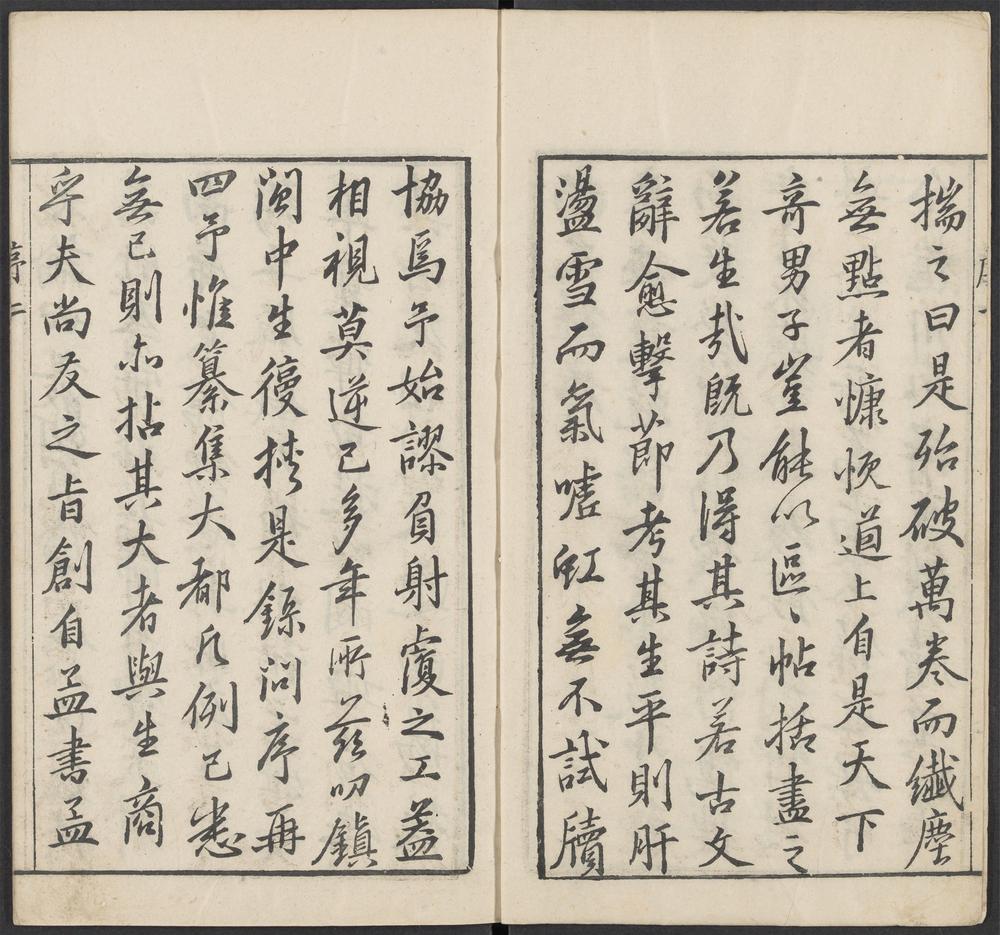 揣之曰是殆破萬卷而纖塵
無點者慷忼道上自是天下
奇男子豈能以區〻帖括盡之
若生哉既乃得其詩若古文
辭愈擊節考其生平則肝
盪雪而氣嘘虹無不試牘
協焉予始謬負射覆之工蓋
相視莫逆已多年所茲叨鎮
閩中生復挾是錄問序再
四予惟纂集大都凡例已悉
無已則亦拈其大者與生商
乎夫尚友之旨創自孟書孟
序二